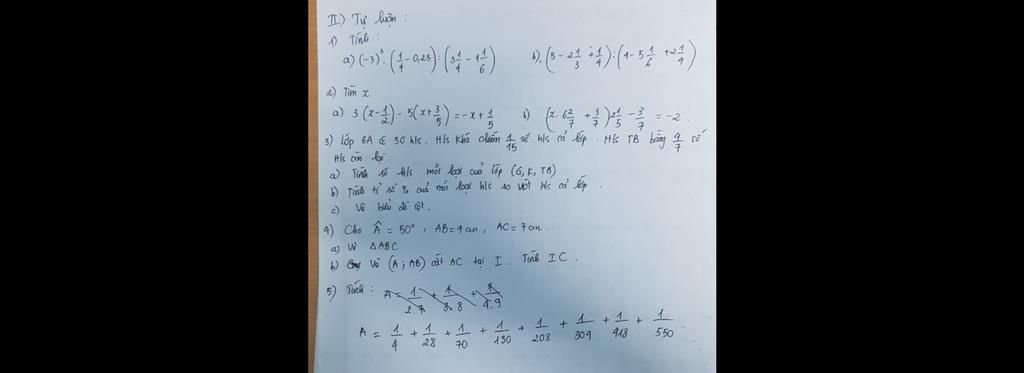 II) Tự luận :
1) Tính :
a) (-3)³. (1/4 - 0,25) : (3 1/4 - 1 1/6) b). (3 - 2 1/3 + 1/4) : (4 - 5 1/6 + 2 1/4)
2) Tìm x
a) 3 (x - 1/2) - 5 (x + 3/5) = -x + 1/5 b) (x. 6 2/7 + 3/7) 2 1/5 - 3/7 = -2.
3) Lớp 6A có 30 h/s. H/s khá chiếm 1/15 số h/s cả lớp. H/s TB bằng 4/7 số
H/s còn lại
a) Tính số h/s mỗi loại của lớp (G, K, TB)
b) Tính tỉ số % của mỗi loại h/s so với h/s cả lớp.
c) Vẽ biểu đồ cột.
4) Cho Â = 50°, AB = 4 cm, AC = 7 cm.
a) Vẽ △ABC
b) Vẽ (A ; AB) cắt AC tại I. Tính IC.
5) Tính : A = 1/2.7 + 1/3.8 + 1/4.9
A = 1/4 + 1/28 + 1/70 + 1/130 + 1/208 + 1/304 + 1/418 + 1/550